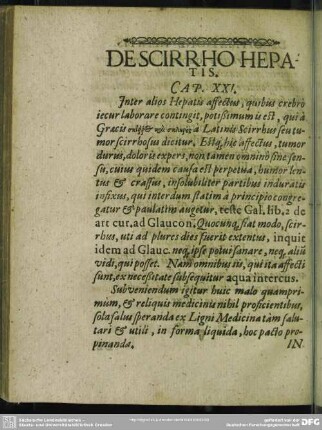 DE SCIRRHO HEPA-
TIS.
CAP. XXI.
Inter alios Hepatis affectus, quibus crebrò
iecur laborare contingit, potissimum is est, qui à
Græcis à Latinis Scirrhus seu tu-
mor scirrhosus dicitur. Estq́; hic affectus, tumor
durus, doloris expers, non tamen omninò sine sen-
su, cuius quidem causa est perpetua, humor len-
tus & crassus, insolubiliter partibus induratis
infixus, qui interdum statim à principio congre-
gatur & paulatim augetur, teste Gal. lib. 2 de
art cur. ad Glaucon. Quocunq; fiat modo, scir-
rhus, uti ad plures dies fuerit extentus, inquit
idem ad Glauc. neq; ipse potui sanare, neq; aliū
vidi, qui posset. Nam omnibus iis, qui ita affecti
sunt, ex necesitate subsequitur aqua intercus.
Subveniendum igitur huic malo quampri-
mùm, & reliquis medicinis nihil proficientibus,
sola salus speranda ex Ligni Medicina tàm salu-
tari & utili, in forma liquida, hoc pacto pro-
pinanda.
IN